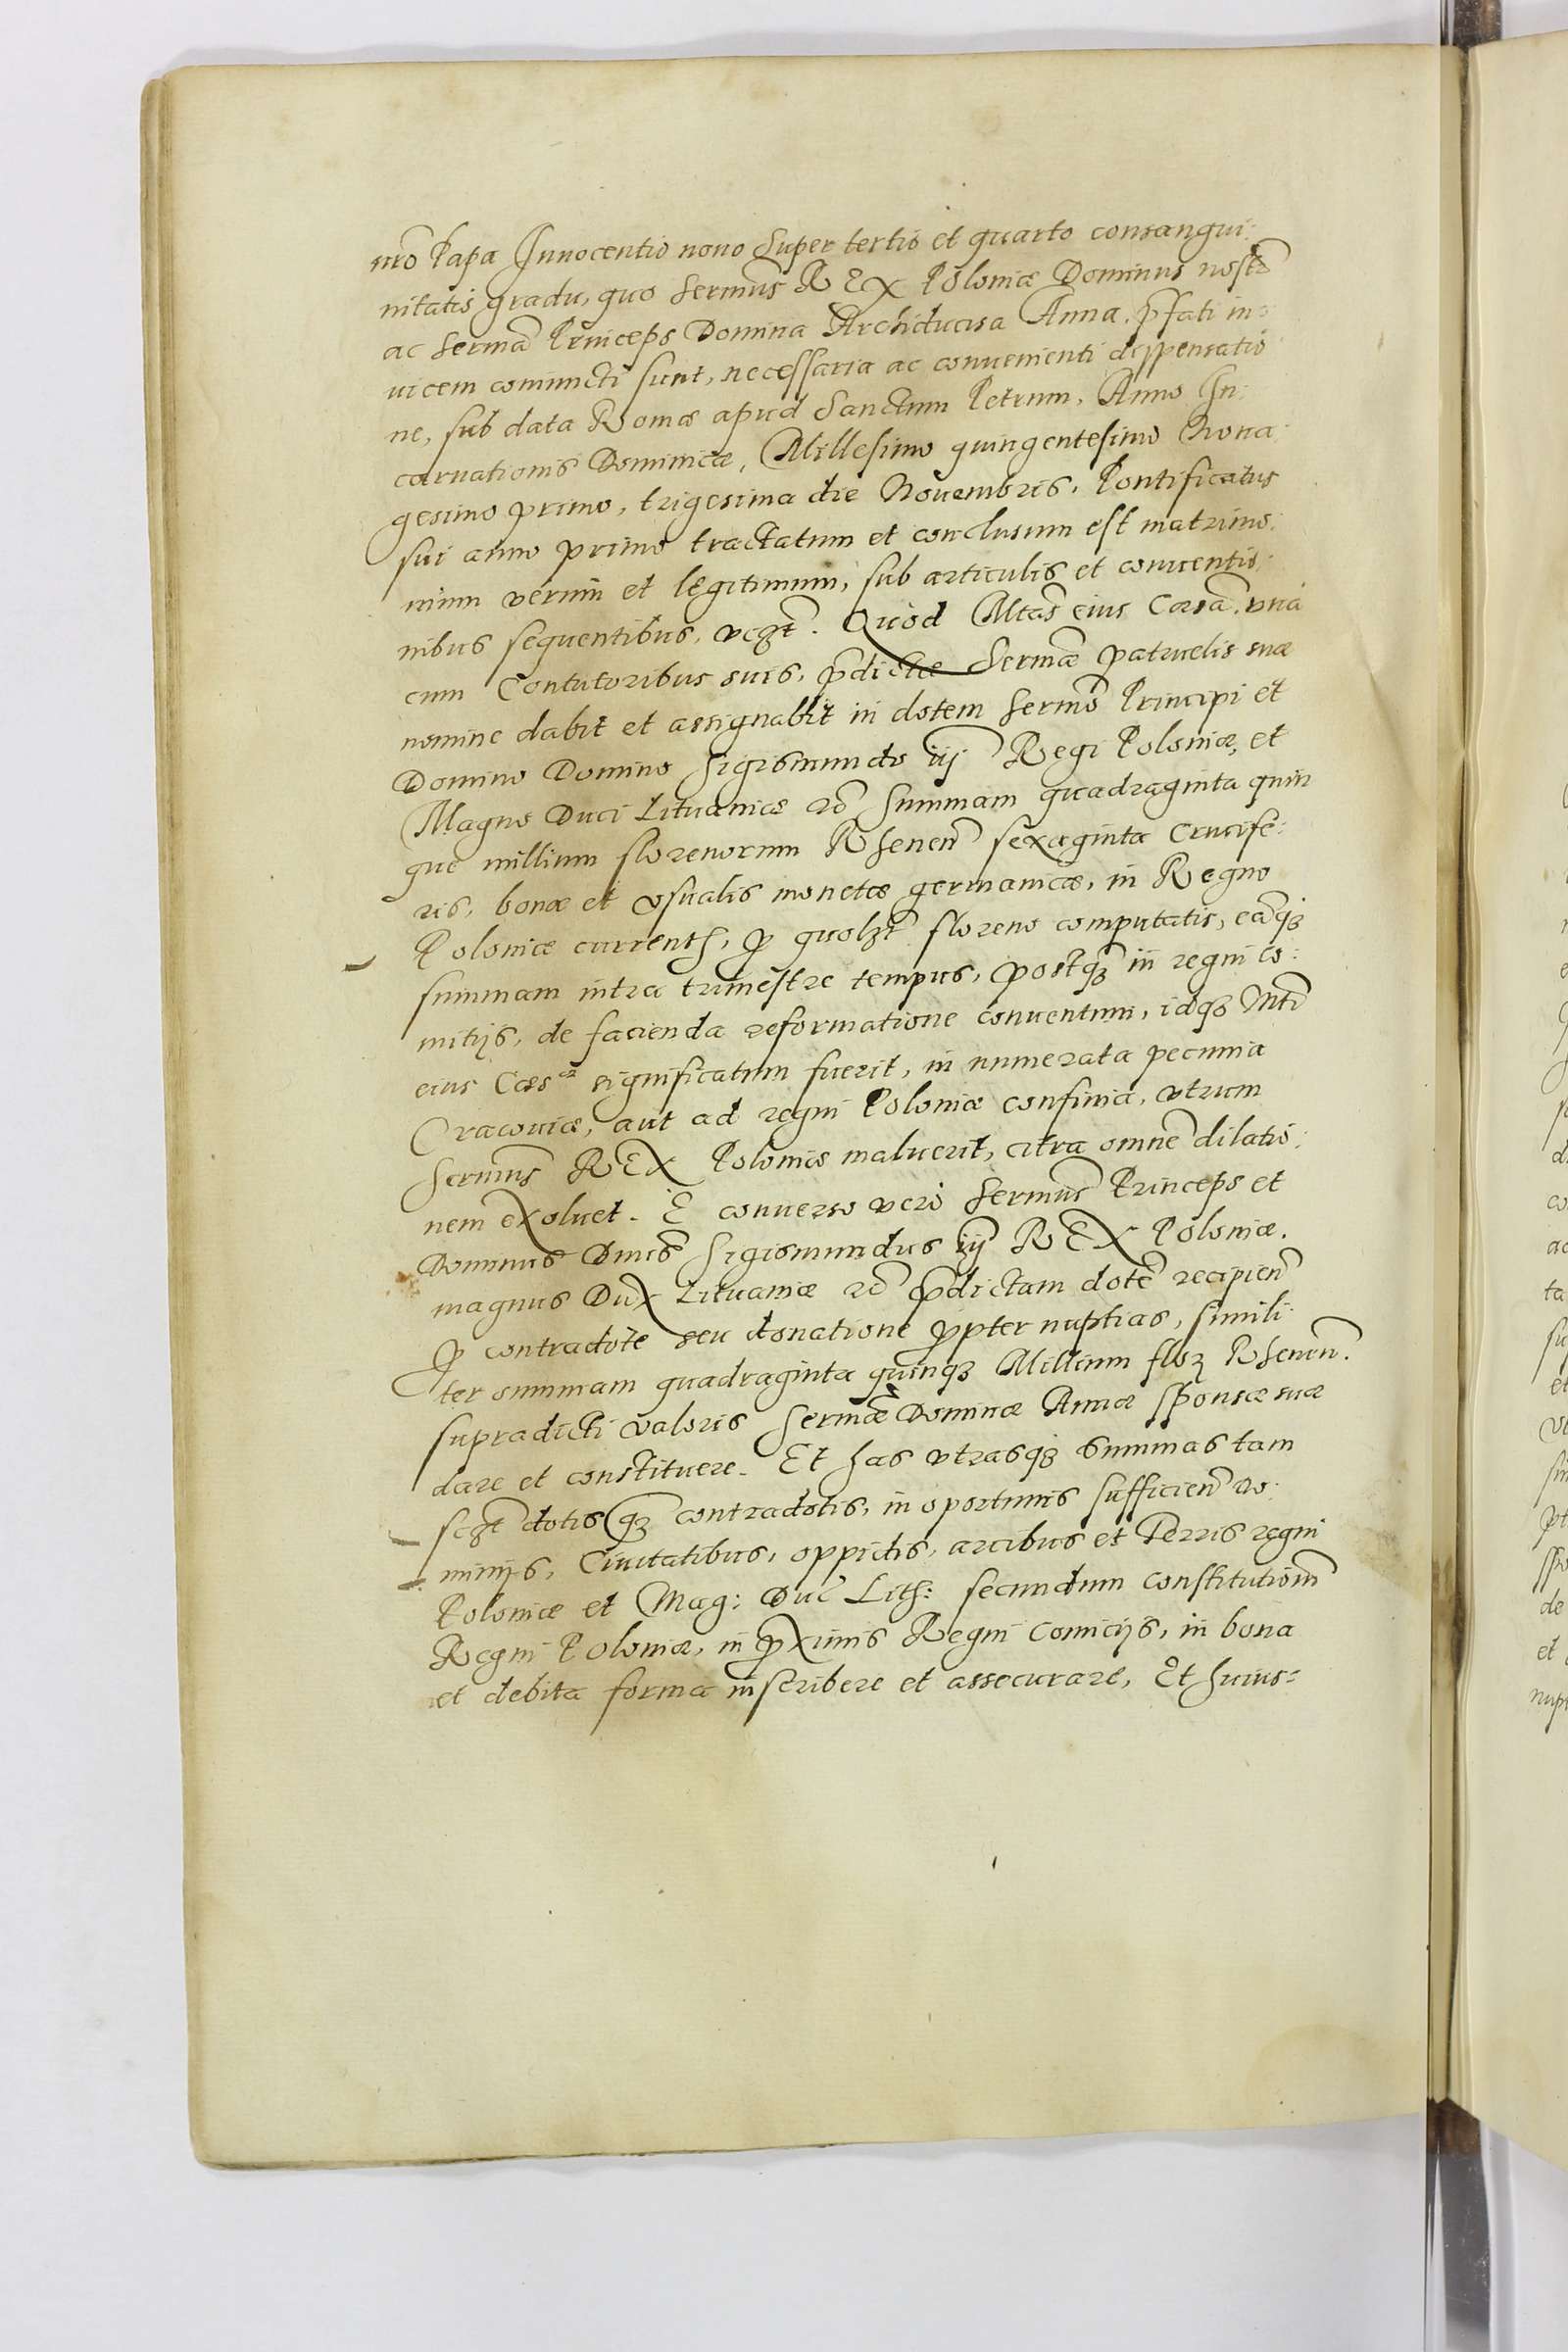 nr̃o Papa Innocentio nono super tertio et quarto consangui:
nitatis gradu, quo sermũs REX Poloniæ Dominus nostẽr
ac sermã Princeps Domina Archiducissa Anna, p̃fati in:
uicem coniuncti sunt, necessaria ac conuenienti dispensatio
ne, sub data Romæ apud Sanctum Petrum, Anno In:
carnationis Dominicæ, Millesimo quingentesimo Nona:
gesimo primo, trigesima die Nouembris, Pontificatus
sui anno primo tractatum et conclusum est matrimo:
nium verum et legitimum, sub articulis et conuentio:
nibus sequentibus, vczt. Quòd Mtas eius Cæsã. vnà
cum Contutoribus suis, p̃dictæ sermæ patruelis suæ
nomine dabit et assignabit in dotem sermo Principi et
Domino Domino Sigismundo iij Regi Poloniæ, et
Magno Duci Lituaniæ &c. summam quadraginta quin
que millium florenorum Rhenen̄ sexaginta crucife:
ris, bonæ et vsualis monetæ germanicæ, in Regno
Poloniæ currentis, p quolzt floreno computatis, eamq3
summam intra trimestre tempus, postq̃ in regni co:
mitijs, de facienda reformatione conuentum, idq3 Mti
eius Cæs.ᵃᵉ significatum fuerit, in numerata pecunia
Cracouiæ, aut ad regni Poloniæ confinia, vtrum
sermũs REX Poloniæ maluerit, citra omnẽ dilatio:
nem exoluet. E conuerso verò sermũs Princeps et
Dominus Dnus Sigismundus iij REX Poloniæ.
magnus Dux Lituaniæ &c. p̃dictam dotẽ recipien̄
p contradote seu donatione ppter nuptias, simili
ter summam quadraginta quinq3 Millium flor̃ Rhenen̄.
supradicti valoris sermæ Dominæ Annæ sponsæ suæ
dare et constituere. Et has vtrasq3 summas tam
sczt dotis q̃ contradotis, in oportunis sufficien̄ do:
minijs, Ciuitatibus, oppidis, arcibus et Terris regni
Poloniæ et Mag: Duc̃ Lith: secundum constitutionem
Regni Poloniæ, in pximis Regni Comicijs, in bona
et debita forma inscribere et assecurare, Et huius=